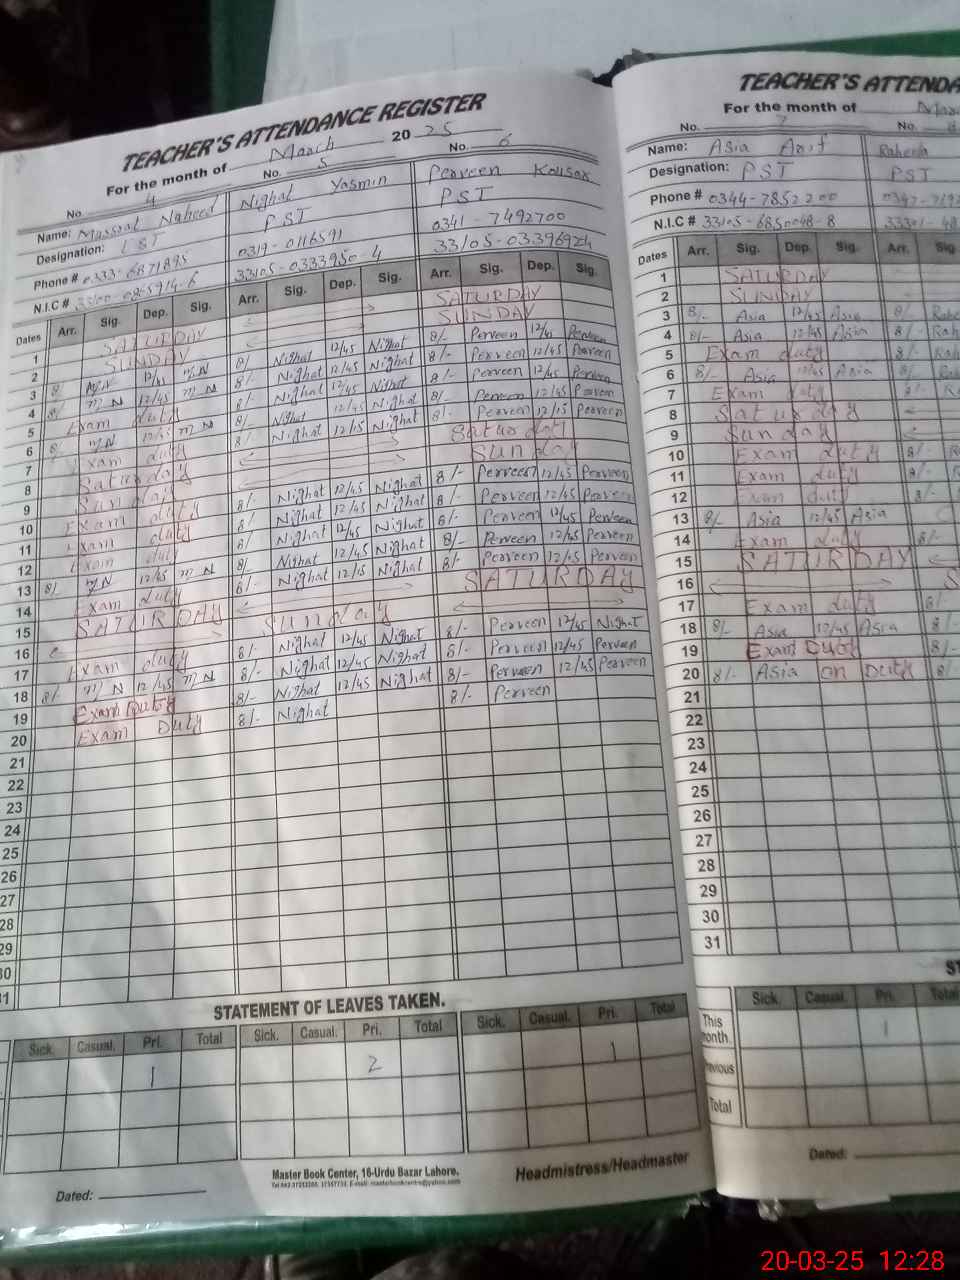 TEACHER'S ATTENDANCE REGISTER
For the month of March 20 25
No. 4 No. 5 No. 6
Name: Massrat Naheed Nighat Yasmin Perveen Kousar
Designation: PST PST PST
Phone # 0333-6871895 0319-0116591 0341-7492700
N.I.C # 33105-0333950-4 33105-03396924
Dates Arr. Sig. Dep. Sig. Arr. Sig. Dep. Sig. Arr. Sig. Dep. Sig.
1 SATURDAY SATURDAY
2 SUNDAY SUNDAY
3 8/ M.N 12/45 M.N 8/ Nighat 12/45 Nighat 8/- Perveen 12/45 Perveen
4 8/ M N 12/45 M N 8/ Nighat 12/45 Nighat 8/- Perveen 12/45 Perveen
5 Exam duty 8/- Nighat 12/45 Nighat 8/- Perveen 12/45 Perveen
6 8/ M N 12/45 M N 8/ Nighat 12/45 Nighat 8/- Perveen 12/45 Perveen
7 Exam duty 8/ Nighat 12/45 Nighat 8/- Perveen 12/45 Perveen
8 Saturday Saturday
9 Sunday Sunday
10 Exam duty 8/- Nighat 12/45 Nighat 8/- Perveen 12/45 Perveen
11 Exam duty 8/- Nighat 12/45 Nighat 8/- Perveen 12/45 Perveen
12 Exam duty 8/ Nighat 12/45 Nighat 8/- Perveen 12/45 Perveen
13 8/ M N 12/45 M N 8/- Nighat 12/45 Nighat 8/- Perveen 12/45 Perveen
14 Exam duty 8/- Nighat 12/45 Nighat 8/- Perveen 12/45 Perveen
15 SATURDAY SATURDAY
16 Sunday
17 Exam duty 8/- Nighat 12/45 Nighat 8/- Perveen 12/45 Nighat
18 8/- M N 12/45 M N 8/- Nighat 12/45 Nighat 8/- Perveen 12/45 Perveen
19 Exam Duty 8/- Nighat 12/45 Nighat 8/- Perveen 12/45 Perveen
20 Exam Duty 8/- Nighat 8/- Perveen
21
22
23
24
25
26
27
28
29
30
31
STATEMENT OF LEAVES TAKEN.
Sick. Casual. Pri. Total Sick. Casual. Pri. Total Sick. Casual. Pri. Total
1 2 1
Master Book Center, 16-Urdu Bazar Lahore.
Headmistress/Headmaster
Dated:
TEACHER'S ATTENDA
For the month of
No. 7 No. 8
Name: Asia Arif Raheela
Designation: PST PST
Phone # 0344-7852200
N.I.C # 33105-6850048-8
Dates Arr. Sig. Dep. Sig. Arr. Sig
1 SATURDAY
2 SUNDAY
3 8/- Asia 12/45 Asia 8/-
4 8/- Asia 12/45 Asia 8/- Rah
5 Exam duty 8/-
6 8/- Asia 12/45 Asia 8/-
7 Exam duty 8/-
8 Saturday
9 Sunday
10 Exam duty 8/-
11 Exam duty 8/-
12 Exam duty 8/-
13 8/- Asia 12/45 Asia
14 Exam duty 8/-
15 SATURDAY
16 S
17 Exam duty 8/-
18 8/- Asia 12/45 Asia 8/-
19 Exam Duty 8/-
20 8/- Asia on Duty 8/
21
22
23
24
25
26
27
28
29
30
31
ST
Sick. Casual. Pri. Total
This month. 1
Previous
Total
Dated:
20-03-25 12:28